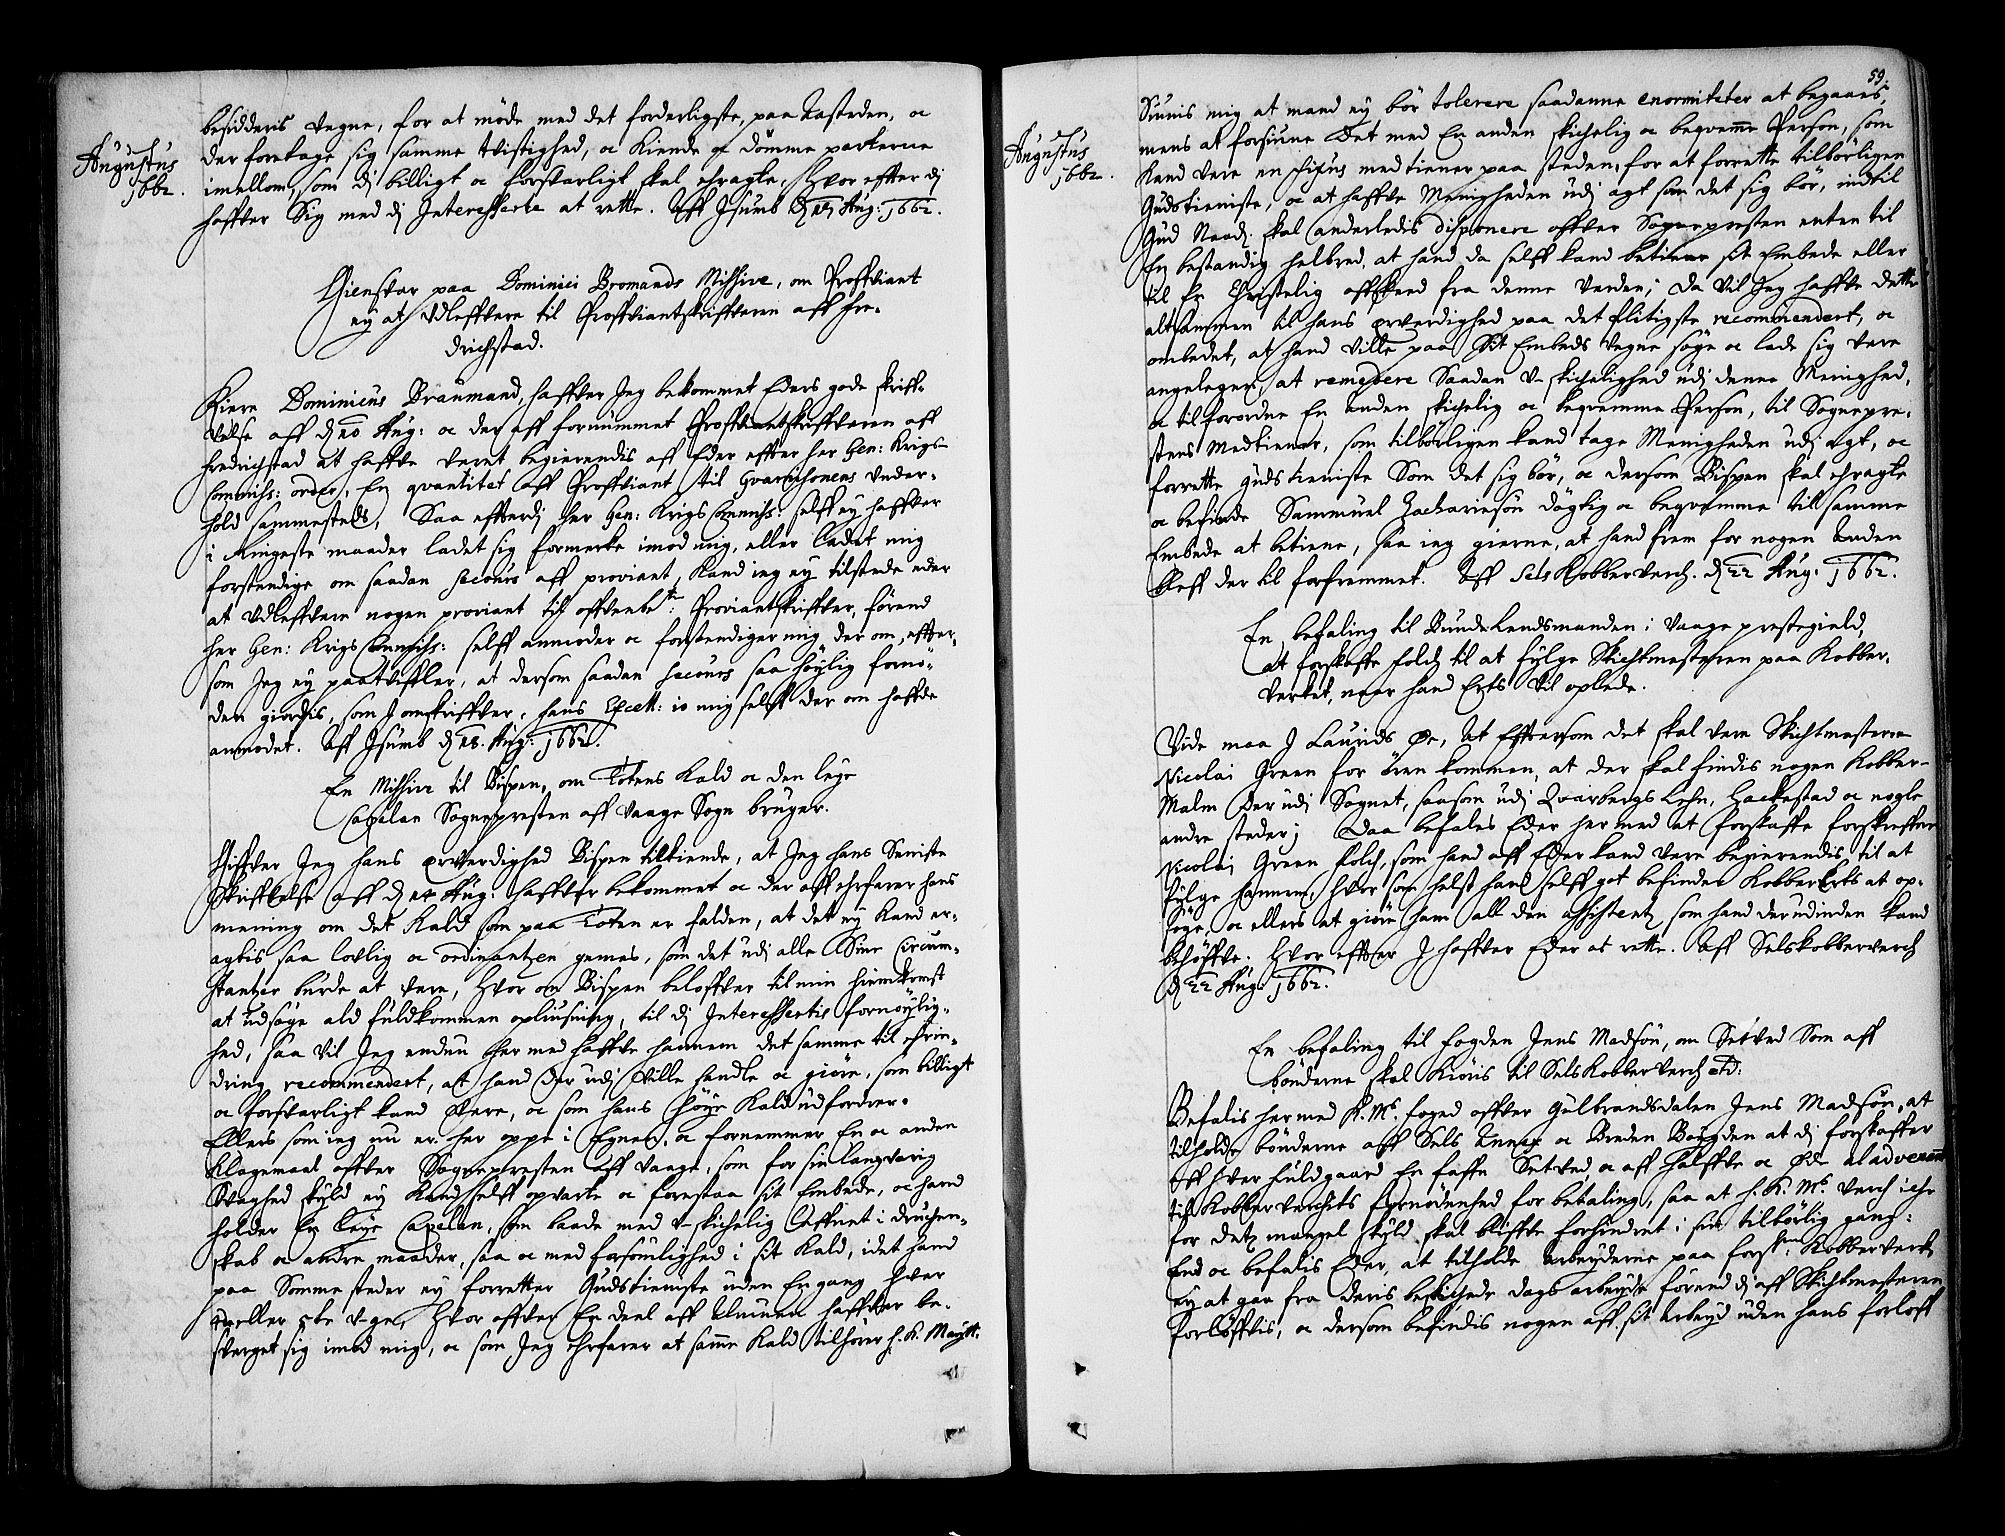 Augustus
1662.
besidderis vegne, for at møde med det forderligste, paa Aastæden, oc
der foretage sig samme tvistighed, oc kiende oc dømme parterne
imellom, som di billigt oc forsvarligt skal eragte. Hvor effter di
haffver Sig med di Interesserte at rette. Aff Isumb d. 18 Aug: 1662.
Giensvar paa Dominici Bromands Missive, om Proffviant
ey at Udleffvere til Proffviantskriffveren aff Fre-
drichstad.
Kiere Dominicus Braumand, haffver Jeg bekommet Eders gode skriff-
velse aff d. 10 Aug: oc der aff fornummet Proffviantskriffveren aff
Fredrichstad at haffve veret begierendis aff Eder effter her Gen: Krigs
Commiss: order, En qvantitet aff Proffviant til Gvarnisonens under-
hold sammesteds, Saa effterdj her Gen: Krigs Commiss: selff ey haffver
i Ringeste maader ladet sig formerke imod mig, eller ladet mig
forstendige om saadan secours aff proviant, kand ieg ey tilstede eder
at udleffvere nogen proviant til offvenbe.te Proviantskriffver, førend
her Gen: Krigs Commiss: selff anmoder oc forstendiger mig der om, effter-
som Jeg ey paatviffler, at dersom saadan secours saa høylig fornø-
den giordis, som I omskriffver, hans Excell: io mig selff der om haffde
anmodet. Aff Isumb d. 18. Aug: 1662.
En Missive til Bispen, om Totens Kald oc den leye
Capelan Sognepresten aff Vaage Sogn bruger.
Giffver Jeg hans ærverdighed Bispen tilkiende, at Jeg hans Seniste
Skriffvelse aff d. 12 Aug: haffver bekommet oc der aff erfarer hans
mening om det Kald som paa Toten er falden, at det ey kand er-
agtis saa lovlig oc ordinantzen gemes, som det udj alle Sine Circum-
stantier burde at vere, Hvor om Bispen beloffver til min hiemkomst
at udsøge ald fuldkommen opliusning, til dj Interessertis fornøylig-
hed, saa vil Jeg endnu her med haffve hannem det samme til erin-
dring recommendert, at hand der udj ville handle oc giøre, som billigt
oc forsvarligt kand vere, oc som hans høye Kald udfordrer.
Ellers som ieg nu er her oppe i Egnen, oc fornemmer En oc anden
klagemaal offver Sognepresten aff Vaage, som for sin langvarig
Svaghed skyld ey kand selff opvarte oc forestaa sit Embede, oc hand
holder En leye Capelan, som baade med u-skichelig leffnet i druchen-
skab oc andre maader, saa oc med forsømlighed i sit Kald, idet hand
paa Somme steder ey forretter Gudstieniste uden En gang hver
eller 5te uge, Hvor offver En deel aff Almuen haffver be-
sverget sig imod mig, oc som Jeg erfarer at samme Kald tilhører h. K. Maytt:
59.
Augustus
1662.
Siunis mig at mand ey bør tolerere saadanne enormiteter at begaaes,
mens at forsiune Det med En anden skichelig oc beqvemme Person, som
kand vere en medtiener paa steden, for at forrette tilbørligen
Gudstieniste, oc at haffve Menigheden udj agt som det sig bør, indtil
Gud Naad. skal anderledis disponere offver Sognepresten enten til
En bestandig helbred, at hand da selff kand betiene sit Embede eller
til En Christelig affskeed fra denne Verden; Da vil Jeg haffve dette
altsammen til hans ærverdighed paa det flitigste recommendert, oc
ombedet, at hand ville paa Sit Embeds vegne søge oc lade sig vere
angelegen, at remedere Saadan u-skichelighed udj denne Menighed,
oc tilforordne En anden skichelig oc beqvemme Person, til Sognepre-
stens Medtiener, som tilbørligen kand tage Menigheden udj agt, oc
forrette gudstieniste Som det sig bør, oc dersom Bispen skal eragte
oc befinde Sammuel Zachariesøn dygtig oc beqvemme till samme
Embede at betiene, saa ieg gierne, at hand frem for nogen Anden
bleff der til forfremmet. Aff Sels Kobberverch. d. 22 Aug. 1662.
En befaling til Bundelendsmanden i Vaage prestegield,
at forskaffe folch til at følge Skichtmesteren paa Kobber-
verket, naar hand Erts vil oplede.
Vide maa J Laurids Øe, At Efftersom det skal vere Skichtmesteren
Nicolai Green for øren kommen, at der skal findis nogen Kobber-
Malm der udj Sognet, saasom udj Qvarbergs Lehn, Hackestad oc nogle
andre steder; Daa befales Eder her med at forskaffe forskreffne
Nicolai Green folch, som hand aff Eder kand vere begierendis til at
følge hannem, hvor som helst hand selff got befinder KobberErts at op-
søge, oc ellers at giøre ham all den assistentz som hand der udinden kand
behøffve. Hvor effter J haffver Eder at rette. Aff Selskobberverch
d. 22 Aug: 1662.
En befaling til fogden Jens Madsøn, om Setved Som aff
bønderne skal kiøris til Sels Kobberverch etc:
Befalis her med K. Ms. foged offver Gulbrandsdalen Jens Madsøn, at
tilholde bønderne aff Sels Annex oc Breden Bøygden at dj forskaffer
aff hver fuldgaard En faffn Setved, oc aff halffve oc Øde al advenant
til Kobberverchets fornødenhed for betaling, saa at h. K. Ms. verch iche
for detz mangel skyld skal bliffve forhindret i sin tilbørlig gang:
End oc befalis Eder, at tilholde Arbeyderne paa forskne Kobberverk
ey at gaa fra deris beskichede dags arbeyde førend dj aff Skichtmesteren
forløffvis, oc dersom befindis nogen aff sit Arbeyd uden hans forloff